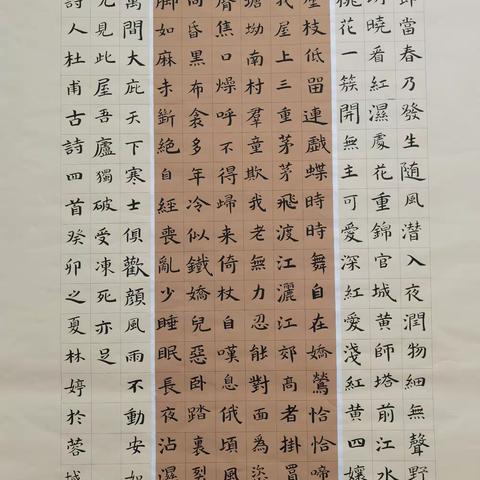 即當春乃發生隨風潛入夜潤物細無聲野
明曉看紅濕處花重錦官城黃師塔前江水
桃花一簇開無主可愛深紅愛淺紅黃四孃
壓枝低留連戲蝶時時舞自在嬌鶯恰恰啼
我屋上三重茅茅飛渡江灑江郊高者掛罥
塘坳南村羣童欺我老無力忍能對面為盜
脣焦口燥呼不得歸来倚杖自嘆息俄頃風
向昏黑布衾多年冷似鐵嬌兒惡卧踏裏裂
腳如麻未斷絕自經喪亂少睡眠長夜沾濕
萬間大庇天下寒士俱歡顏風雨不動安如
兀見此屋吾廬獨破受凍死亦足
詩人杜甫古詩四首癸卯之夏林婷於蓉城